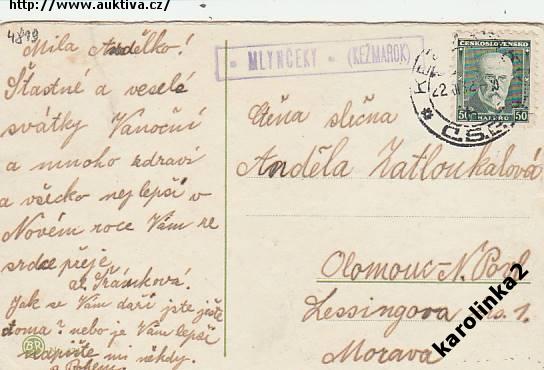 http://www.auktiva.cz/
4819
Milá Andělko!
Šťastné a veselé
svátky Vánoční
a mnoho zdraví
a všecko nejlepší v
Novém roce Vám ze
srdce přeje
Šrámková.
Jak se Vám daří jste ještě
doma? nebo je Vám lepší
napište mi někdy.
BR
• MLYNČEKY • (KEŽMAROK)
ČESKOSLOVENSKO
50 HALÉŘŮ 50
22
Č.S.R.
Ctěná slečna
Anděla Zatloukalová
Olomouc-N.
Lessingova 1
Morava
karolinka2